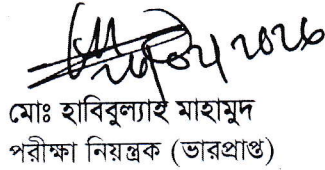 মোঃ হাবিবুল্যাহ মাহামুদ
পরীক্ষা নিয়ন্ত্রক (ভারপ্রাপ্ত)